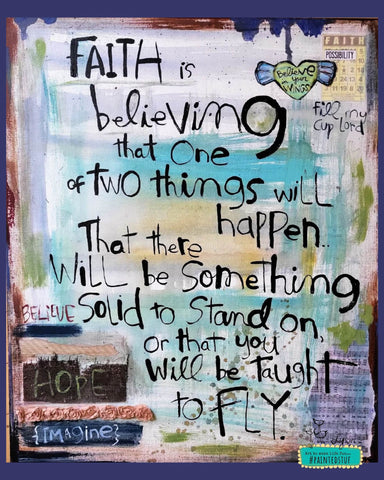 FAITH is
believing
that one
of two things will
happen..
That there
Will be Something
Solid to Stand on,
or that you
will be taught
to FLY.
FAITH
POSSIBILITY
Believe
in your
WINGS
fill my
cup Lord
BELIEVE
HOPE
{imagine}
#PAINTEDSTUF